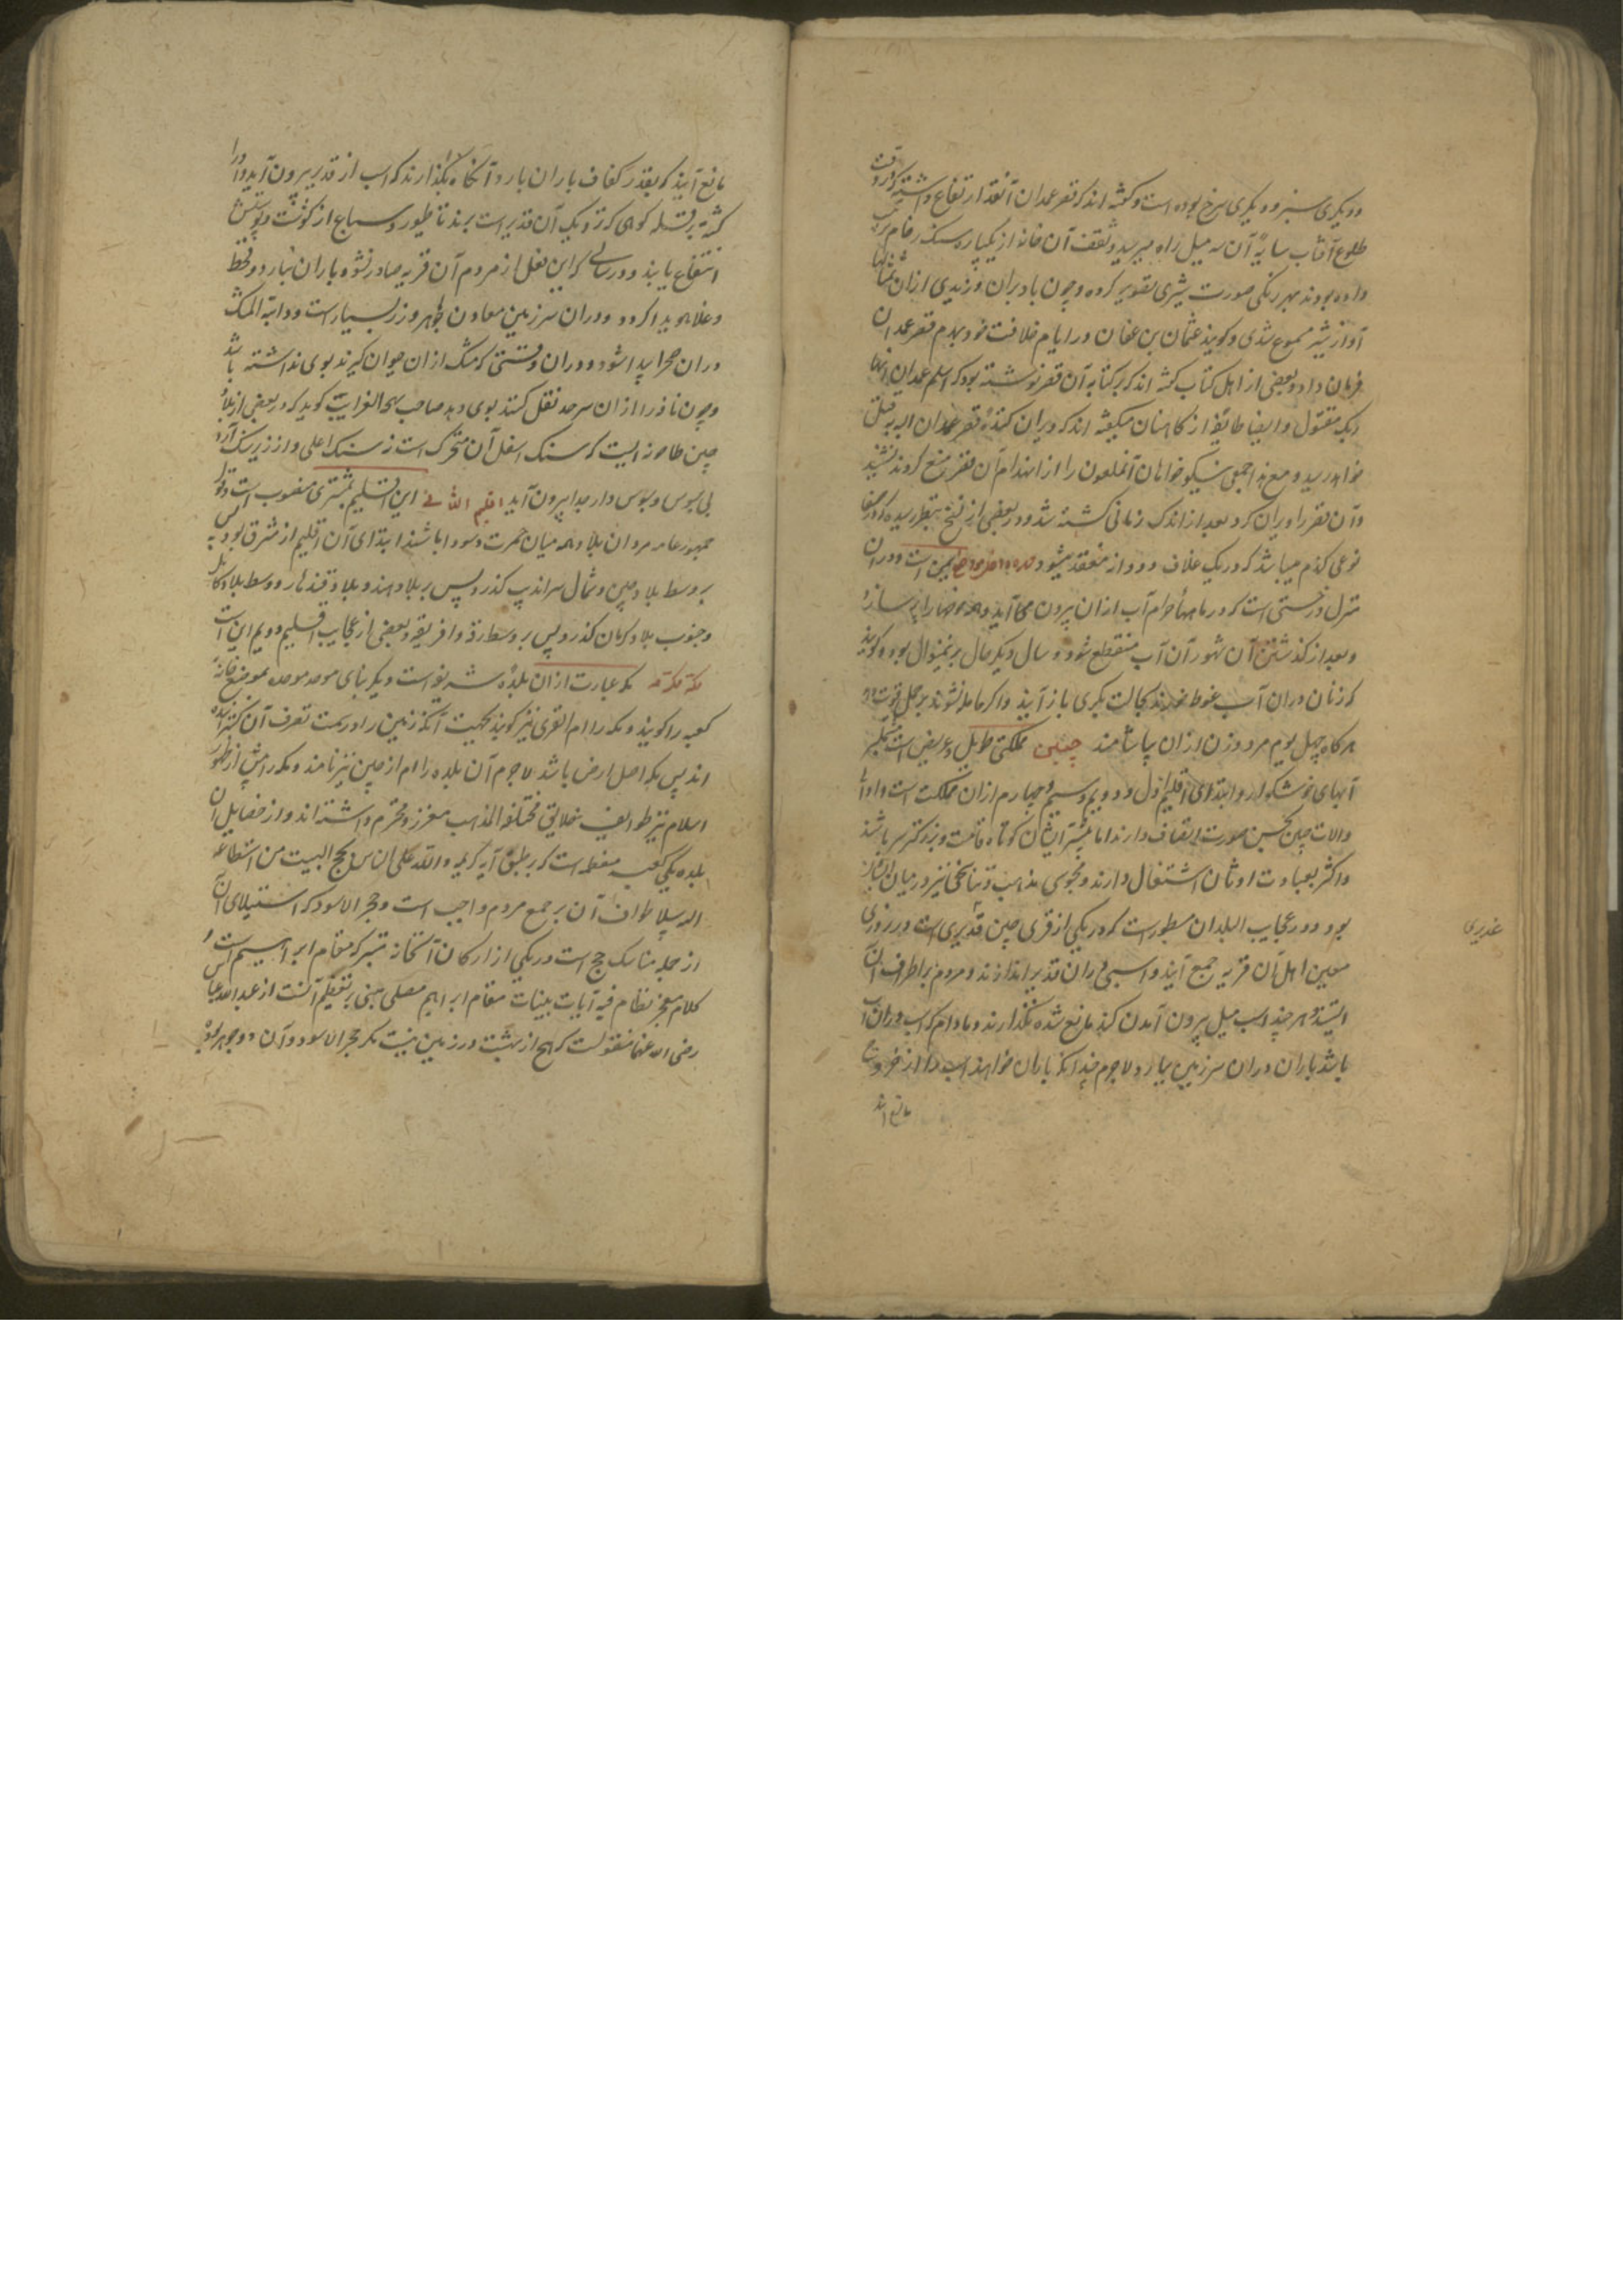 و دیگری سبز و دیگری سرخ بوده است و گفته اند که قصر غمدان آنقدر ارتفاع داشته که در وقت
طلوع آفتاب سایهٔ آن سه میل راه میرسید و سقف آن خانه از یکپاره سنک رخام ترتیب
داده بودند بهر رکنی صورت شیری تصویر کرده و چون باد بران وزیدی ازان تمثالها
آواز شیر مسموع شدی و گویند عثمان بن عفان در ایام خلافت خود بهدم قصر غمدان
فرمان داد و بعضی از اهل کتاب گفته اند که بر کتابه آن قصر نوشته بود که اسلم غمدان
مقتول و ایضا طایفه از کاهنان میگفته اند که ویران کنندهٔ قصر غمدان البته بقتل
خواهد رسید و مع هذا جمعی نیکو خواهان را از انهدام آن قصر منع کردند نشنید
و آن قصر را ویران کرد بعد از اندک زمانی کشته شد و در بعضی از نسخ بنظر رسیده که در صنعا
نوعی گندم میباشد که در یک غلاف دو دانه منعقد میشود یمن است و دران
منزل درختی است که در ماههاء حرام آب ازان بیرون می آید و همه حوضها را پر سازد
و بعد از گذشتن آن شهور آن آب منقطع شود و سال دیگر حال برینمنوال بوده گویند
که زنان دران آب غوطه خورند بحالت بکری باز آیند و اگر حامله نشوند
هرگاه چهل یوم مرد و زن ازان بیاشامند چین مملکتی طویل و عریض است مشتمل بر
آبهای خوشگوار و ابتدای اقلیم اول و دویم و سیم و چهارم ازان مملکت است
ولات چین بحسن صورت اتصاف دارند اما بیشتر ایشان کوتاه قامت و بزرگ سر باشند
و اکثر بعبادت اوثان اشتغال دارند و مجوسی مذهب و تناسخی نیز در میان ایشان
بود و در عجایب البلدان مسطور است که در یکی از قری چین غدیری است و در روزی
غدیری
معین اهل آن قریه جمع آیند و اسبی دران غدیر اندازند و مردم بر اطراف آن
ایستند و هر چند اسب میل بیرون آمدن کند مانع شده نگذارند و مادام که اسب در آن آب
باشد باران دران سرزمین ببارد لاجرم چندانکه باران خواهند اسب را از خروج
مانع آیند
مانع آیند که بقدر کفاف باران بارد آنگاه بگذارند که اسب از غدیر بیرون آید و او را
کشته بر قله کوهی که نزدیک آن غدیر است برند تا طیور و سباع از گوشت و پوستش
انتفاع یابند و در سالی که این فعل از مردم آن قریه صادر نشود باران نبارد و قحط
و غلا پدید گردد و دران سرزمین معادن جواهر و زر بسیار است و دابة المسک
دران صحرا پیدا شود و دران وقتی که مشک ازان حیوان گیرند بوی نداشته باشد
و چون نافه را ازان سرحد نقل کنند بوی دهد صاحب تحفة الغرایب گوید که در بعضی از بلاد
چین طاحونه ایست که سنک اسفل آن متحرک است نه سنک اعلی و از زیر سنک آرد
بی سبوس و سبوس دار جدا بیرون آید اقلیم الثانی این اقلیم بمشتری منسوب است و لون
جمهور عامه مردمان بلاد همه میان حمرت و سواد باشند ابتدای آن اقلیم از مشرق بود پس
بر وسط بلاد چین و شمال سراندیب گذرد پس بر بلاد هند و بلاد قندهار و وسط بلاد کابل
و جنوب بلاد کرمان گذرد پس بر وسط و افریقه و بعضی از عجایب اقلیم دویم این است
مکه مکرمه مکه عبارت ازان بلدهٔ شریفه است و دیگر بنای موحد موحده بموضع خانهٔ
کعبه را گویند و مکه را ام القری نیز گویند بجهت آنکه زمین را در تحت آن گسترانیده
اند پس مکه اصل ارض باشد لاجرم آن بلده را ام ارضین نیز نامند و مکه را پیش از ظهور
اسلام نیز طوایف خلایق مختلفة المذهب معزز و محترم داشته اند و از خصایل آن
بلده یکی کعبه معظمه است که بر طبق آیه کریمه و لله علی الناس حج البیت من استطاع
الیه سبیلا طواف آن بر جمیع مردم واجب است و حجر الاسود که استیلای آن
از جمله مناسک حج است در یکی از ارکان آنخانه متبرکه مقام ابراهیم است و
کلام معجز نظام فیه آیات بینات مقام ابراهیم مصلی مبنی بر تعظیم آنست از عبدالله عباس
رضی الله عنها منقولست که هیچ از بهشت در زمین نیست مگر حجر الاسود و آن دو جوهر بود